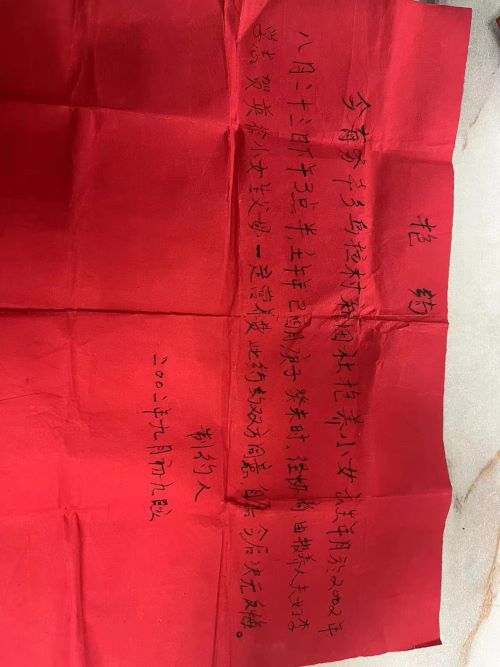 抱 约
今有 乡乌拉村新田社抱养小女 出生年月於2002年
八月二十三日下午3点半,壬午年己酉月庚子 癸未时,经协商 由报养人夫妇李
学志 贺英 给小女生父母一定营养费 此约约双方同意,自后 今后决无反悔。
制约人
二00二年九月初九